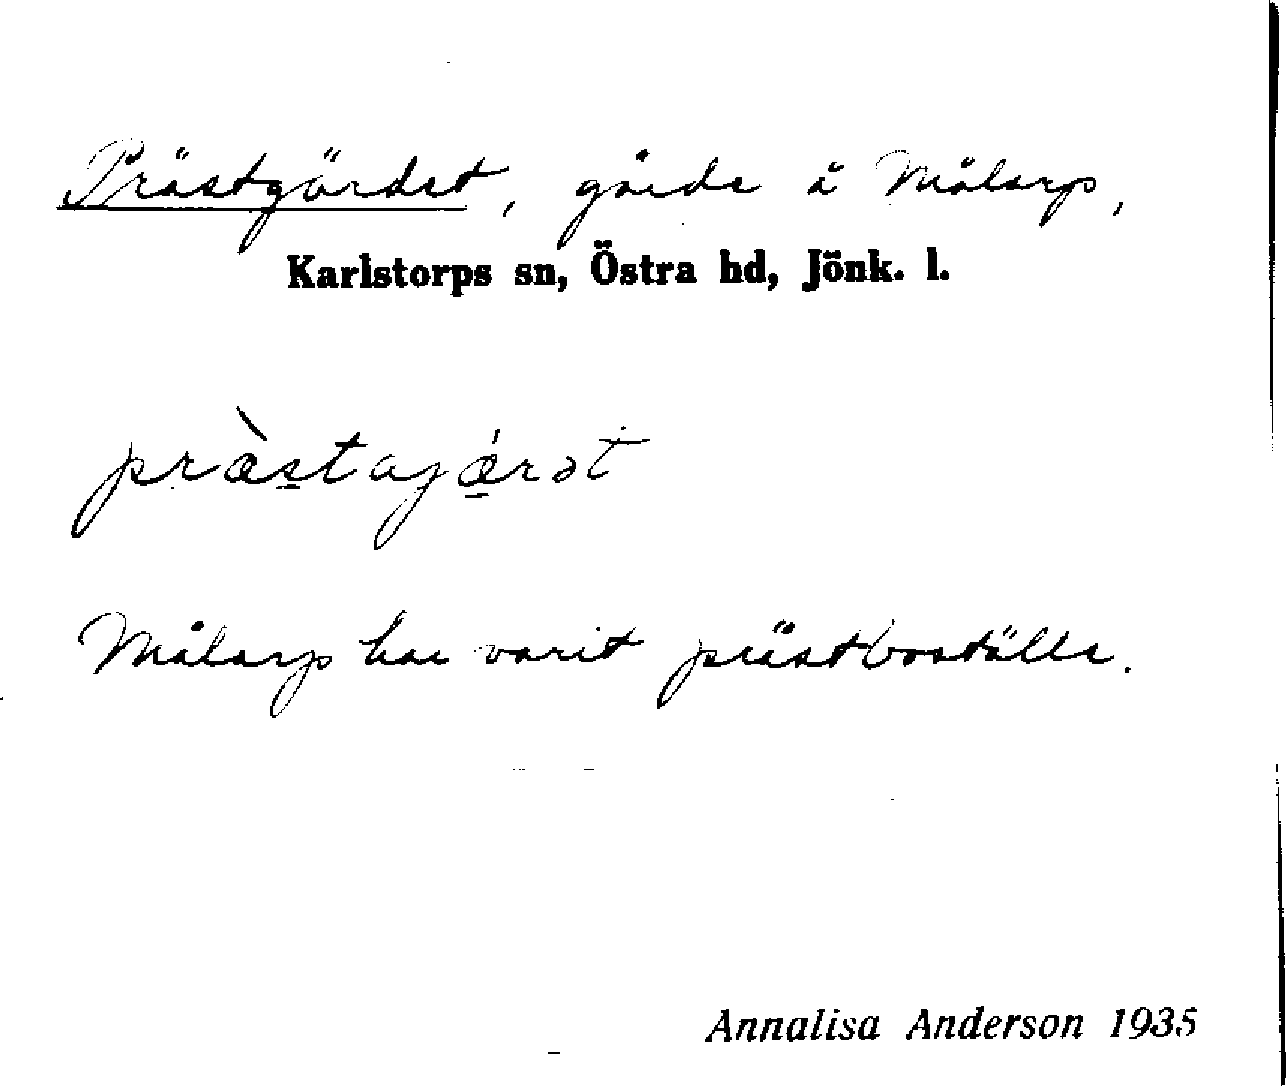 Prästgärdet, gärde å Målarp,
Karlstorps sn, Östra hd, Jönk. l.
præ̀stajǽrət
Målarp har varit prästboställe.
Annalisa Anderson 1935